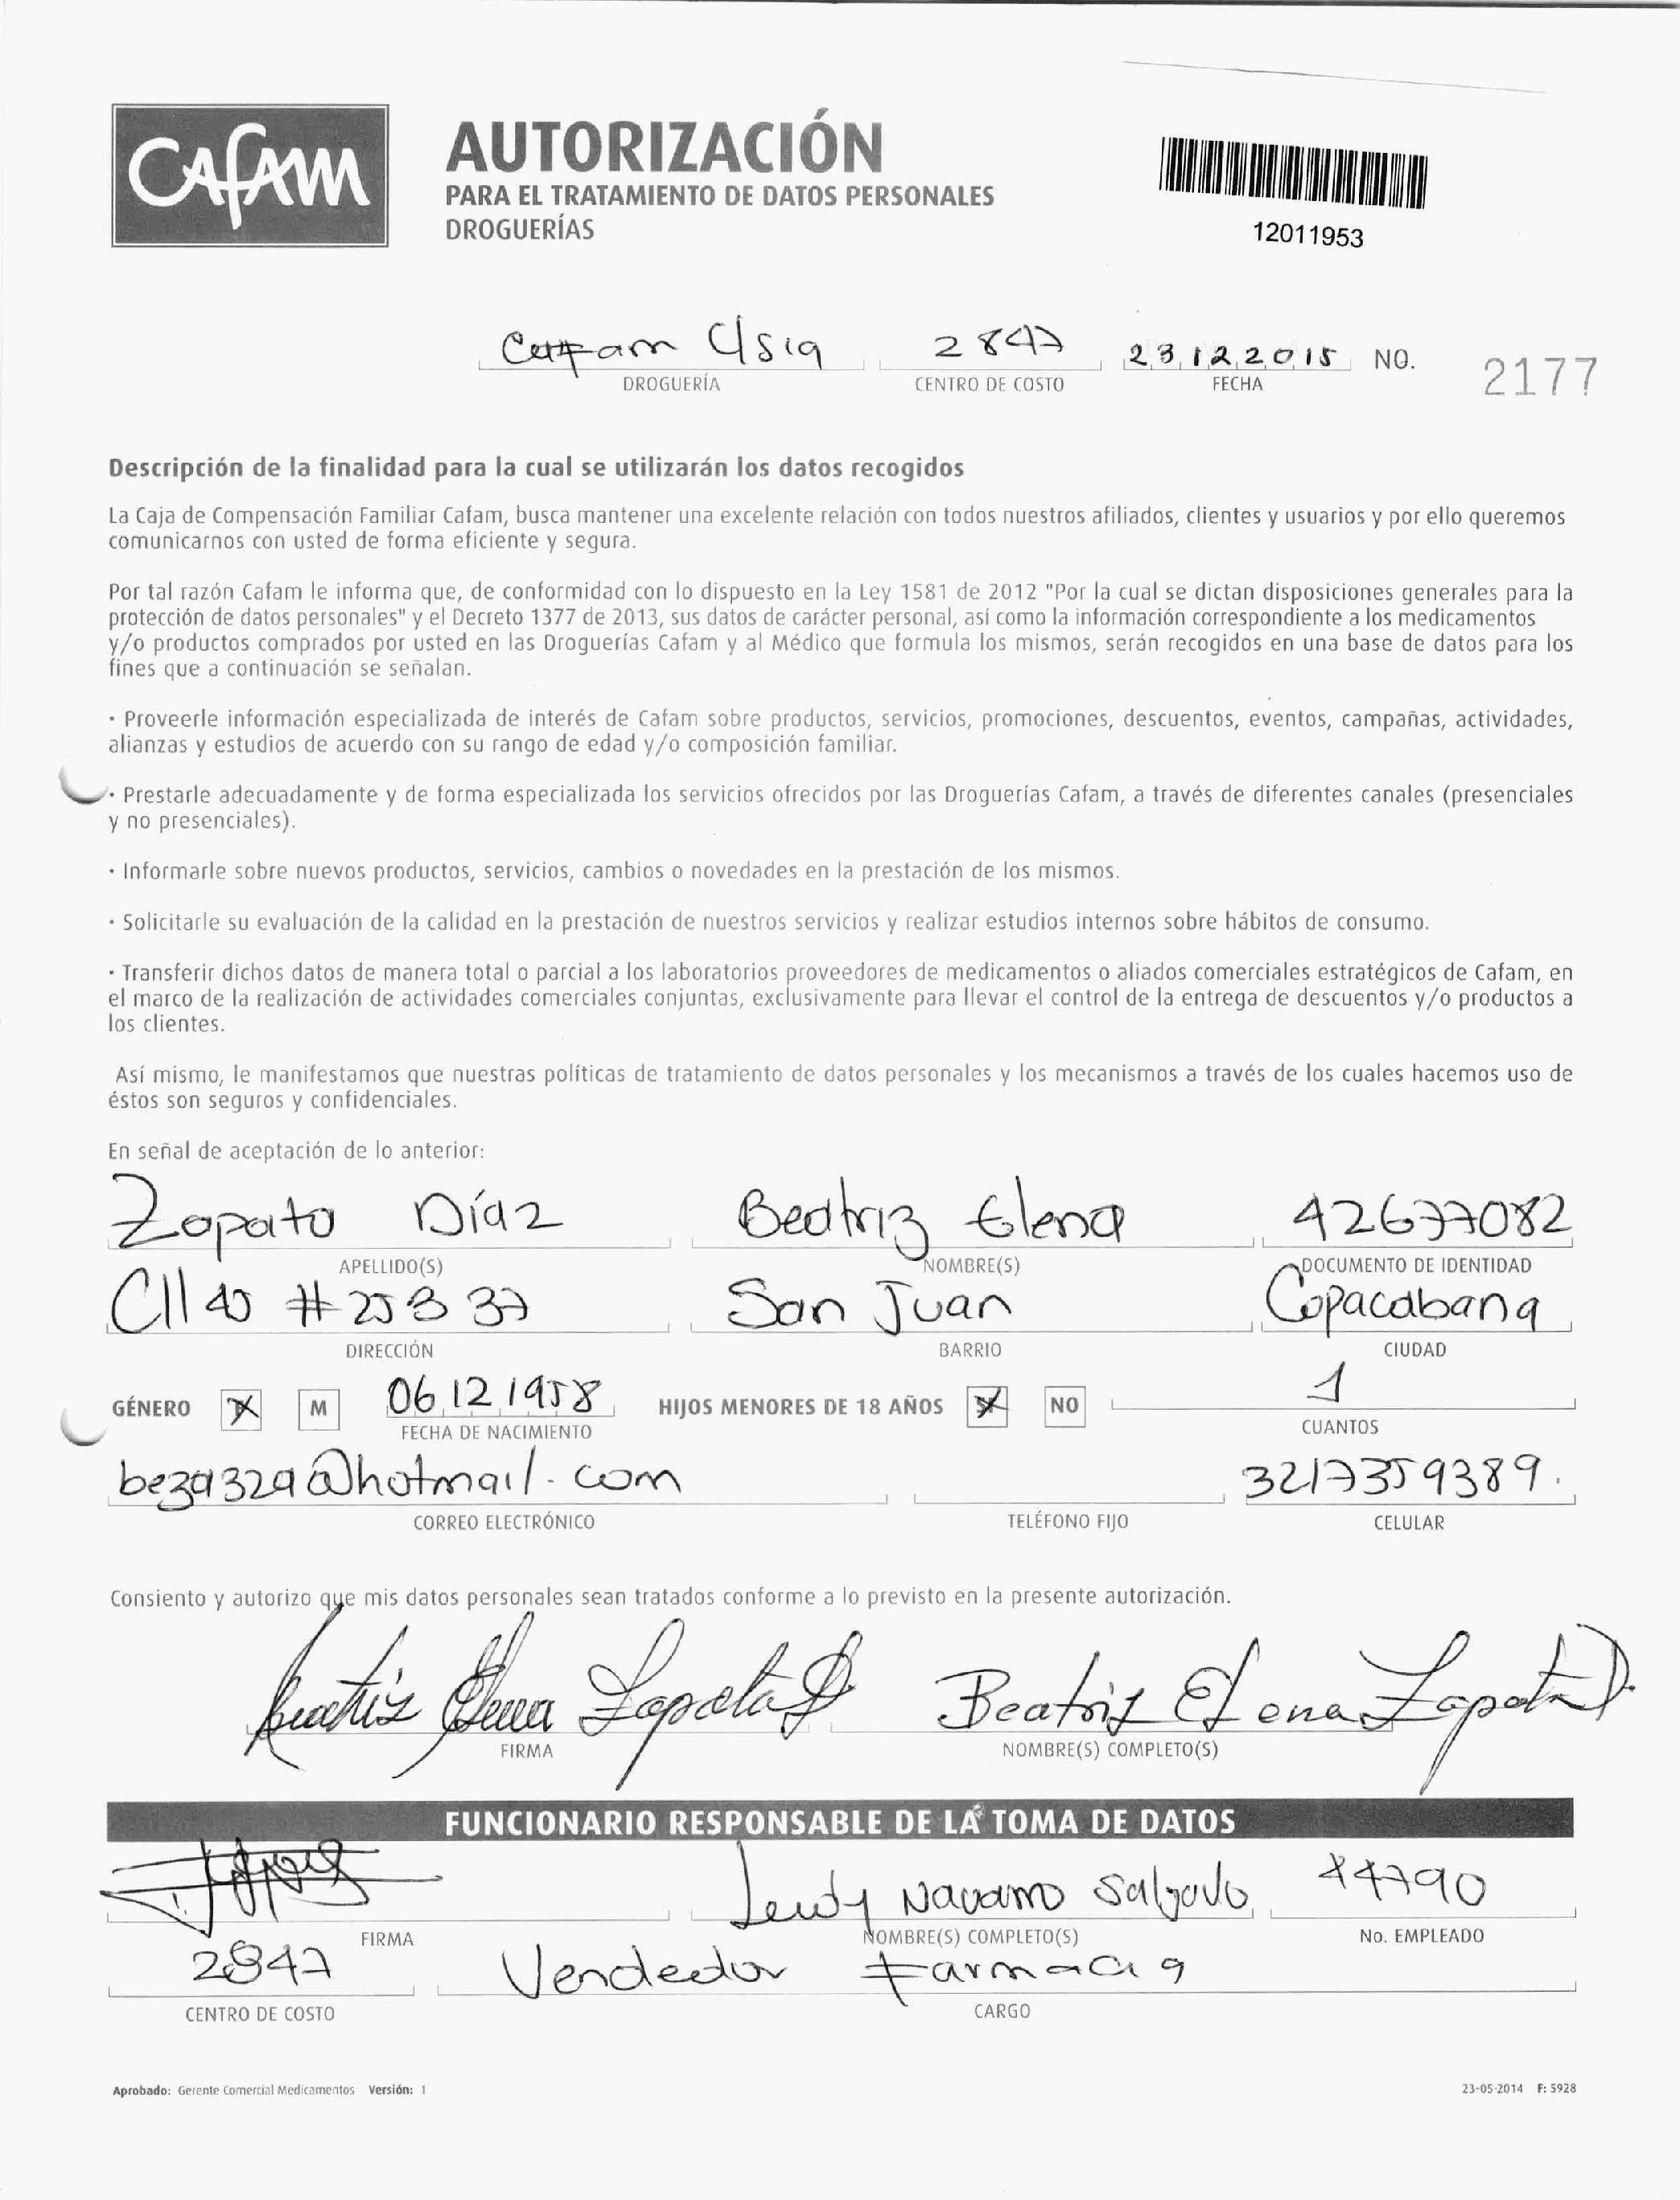 CAfAM
AUTORIZACIÓN
PARA EL TRATAMIENTO DE DATOS PERSONALES
DROGUERÍAS
12011953
Cafam C/sia 2847 23 12 2015 NO. 2177
DROGUERÍA CENTRO DE COSTO FECHA
Descripción de la finalidad para la cual se utilizarán los datos recogidos
La Caja de Compensación Familiar Cafam, busca mantener una excelente relación con todos nuestros afiliados, clientes y usuarios y por ello queremos
comunicarnos con usted de forma eficiente y segura.
Por tal razón Cafam le informa que, de conformidad con lo dispuesto en la Ley 1581 de 2012 "Por la cual se dictan disposiciones generales para la
protección de datos personales" y el Decreto 1377 de 2013, sus datos de carácter personal, así como la información correspondiente a los medicamentos
y/o productos comprados por usted en las Droguerías Cafam y al Médico que formula los mismos, serán recogidos en una base de datos para los
fines que a continuación se señalan.
· Proveerle información especializada de interés de Cafam sobre productos, servicios, promociones, descuentos, eventos, campañas, actividades,
alianzas y estudios de acuerdo con su rango de edad y/o composición familiar.
· Prestarle adecuadamente y de forma especializada los servicios ofrecidos por las Droguerías Cafam, a través de diferentes canales (presenciales
y no presenciales).
· Informarle sobre nuevos productos, servicios, cambios o novedades en la prestación de los mismos.
· Solicitarle su evaluación de la calidad en la prestación de nuestros servicios y realizar estudios internos sobre hábitos de consumo.
· Transferir dichos datos de manera total o parcial a los laboratorios proveedores de medicamentos o aliados comerciales estratégicos de Cafam, en
el marco de la realización de actividades comerciales conjuntas, exclusivamente para llevar el control de la entrega de descuentos y/o productos a
los clientes.
Así mismo, le manifestamos que nuestras políticas de tratamiento de datos personales y los mecanismos a través de los cuales hacemos uso de
éstos son seguros y confidenciales.
En señal de aceptación de lo anterior:
Zapata Díaz Beatriz Elena 42677082
APELLIDO(S) NOMBRE(S) DOCUMENTO DE IDENTIDAD
Cll 45 # 25 B 37 San Juan Copacabana
DIRECCIÓN BARRIO CIUDAD
GÉNERO X M 06 12 1958 HIJOS MENORES DE 18 AÑOS X NO 1
FECHA DE NACIMIENTO CUANTOS
beza329@hotmail.com 3217359389.
CORREO ELECTRÓNICO TELÉFONO FIJO CELULAR
Consiento y autorizo que mis datos personales sean tratados conforme a lo previsto en la presente autorización.
Beatriz Elena Zapata D Beatriz Elena Zapata D.
FIRMA NOMBRE(S) COMPLETO(S)
FUNCIONARIO RESPONSABLE DE LA TOMA DE DATOS
Leidy Navarro Salgado 44790
FIRMA NOMBRE(S) COMPLETO(S) No. EMPLEADO
2847 Vendedor Farmacia
CENTRO DE COSTO CARGO
Aprobado: Gerente Comercial Medicamentos Versión: 1 23-05-2014 F: 5928